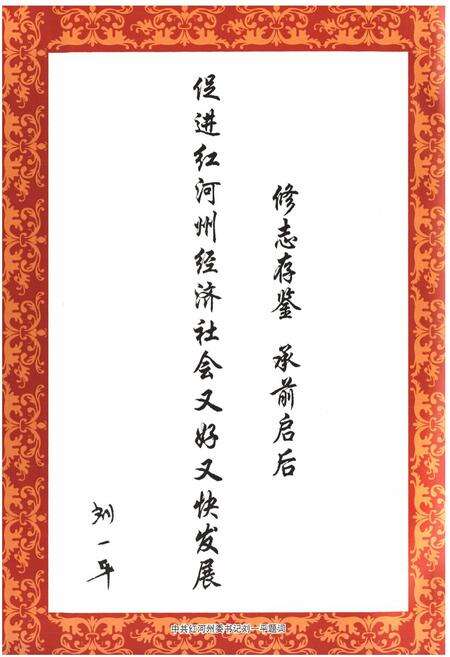 修志存鉴 承前启后
促进红河州经济社会又好又快发展
刘一平
中共红河州委书记刘一平题词